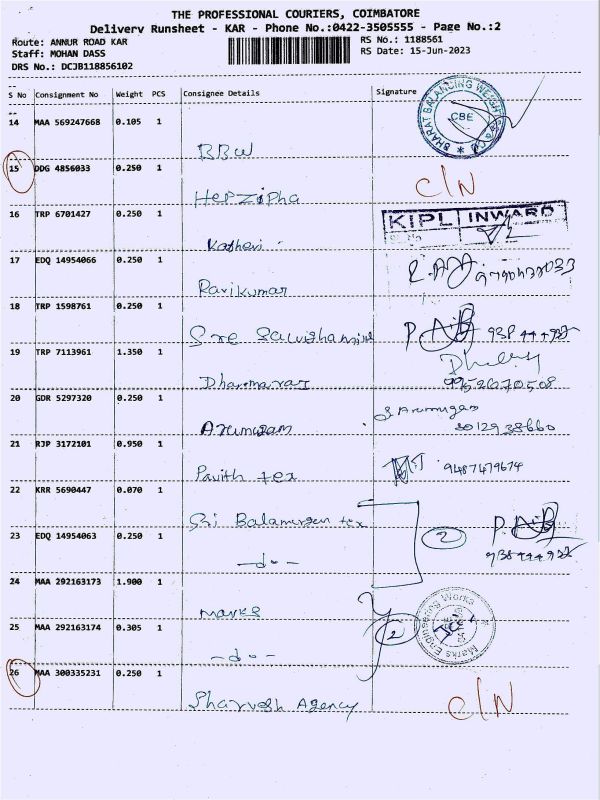 THE PROFESSIONAL COURIERS, COIMBATORE
Delivery Runsheet - KAR - Phone No.:0422-3505555 - Page No.:2
Route: ANNUR ROAD KAR
Staff: MOHAN DASS
DRS No.: DCJB118856102
RS No.: 1188561
RS Date: 15-Jun-2023
S No Consignment No Weight PCS Consignee Details Signature
14 MAA 569247668 0.105 1
BBW
BHARAT BALANCING WEIGHT
CBE
15 DDG 4856033 0.250 1
Hepzipha
C/N
16 TRP 6701427 0.250 1
KIPL INWARD
17 EDQ 14954066 0.250 1
Ravikumar
18 TRP 1598761 0.250 1
Sre
19 TRP 7113961 1.350 1
Dharmaraj
9952670508
20 GDR 5297320 0.250 1
Arumugam
S Arumugam
21 RJP 3172101 0.950 1
Pavith tex
9487479674
22 KRR 5690447 0.070 1
Sri Balamurugan tex
23 EDQ 14954063 0.250 1
-do-
2
24 MAA 292163173 1.900 1
Marks
2
Marks Engineering Works
25 MAA 292163174 0.305 1
-do-
26 MAA 300335231 0.250 1
Sharvesh Agency
C/N